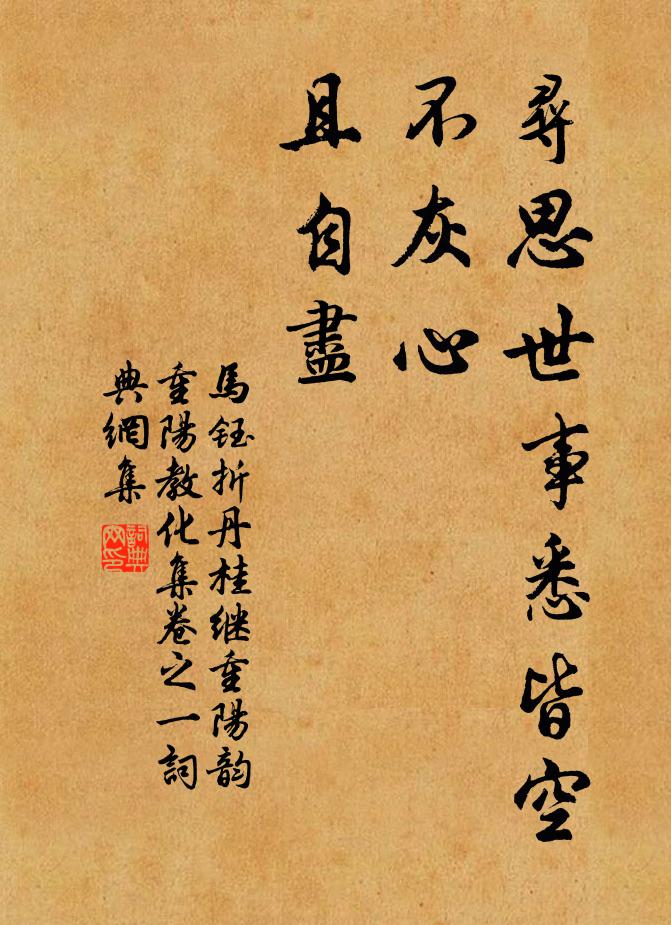 尋思世事悉皆空
不灰心
且自盡
馬鈺折丹桂继重陽韵
重陽教化集卷之一詞
典網集
詞典
网印